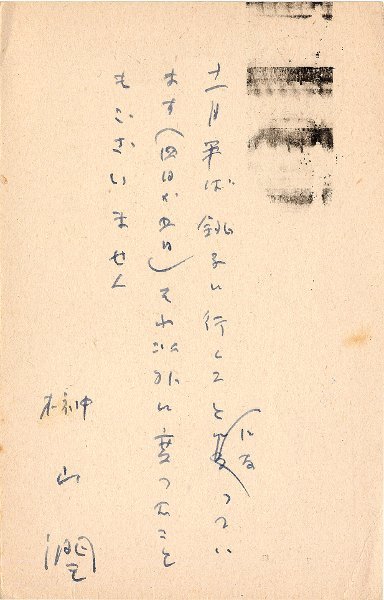 十一月半ば銚子に行くことになってい
ます（四日か五日）それ以外に変ったこと
もございません
榊山潤